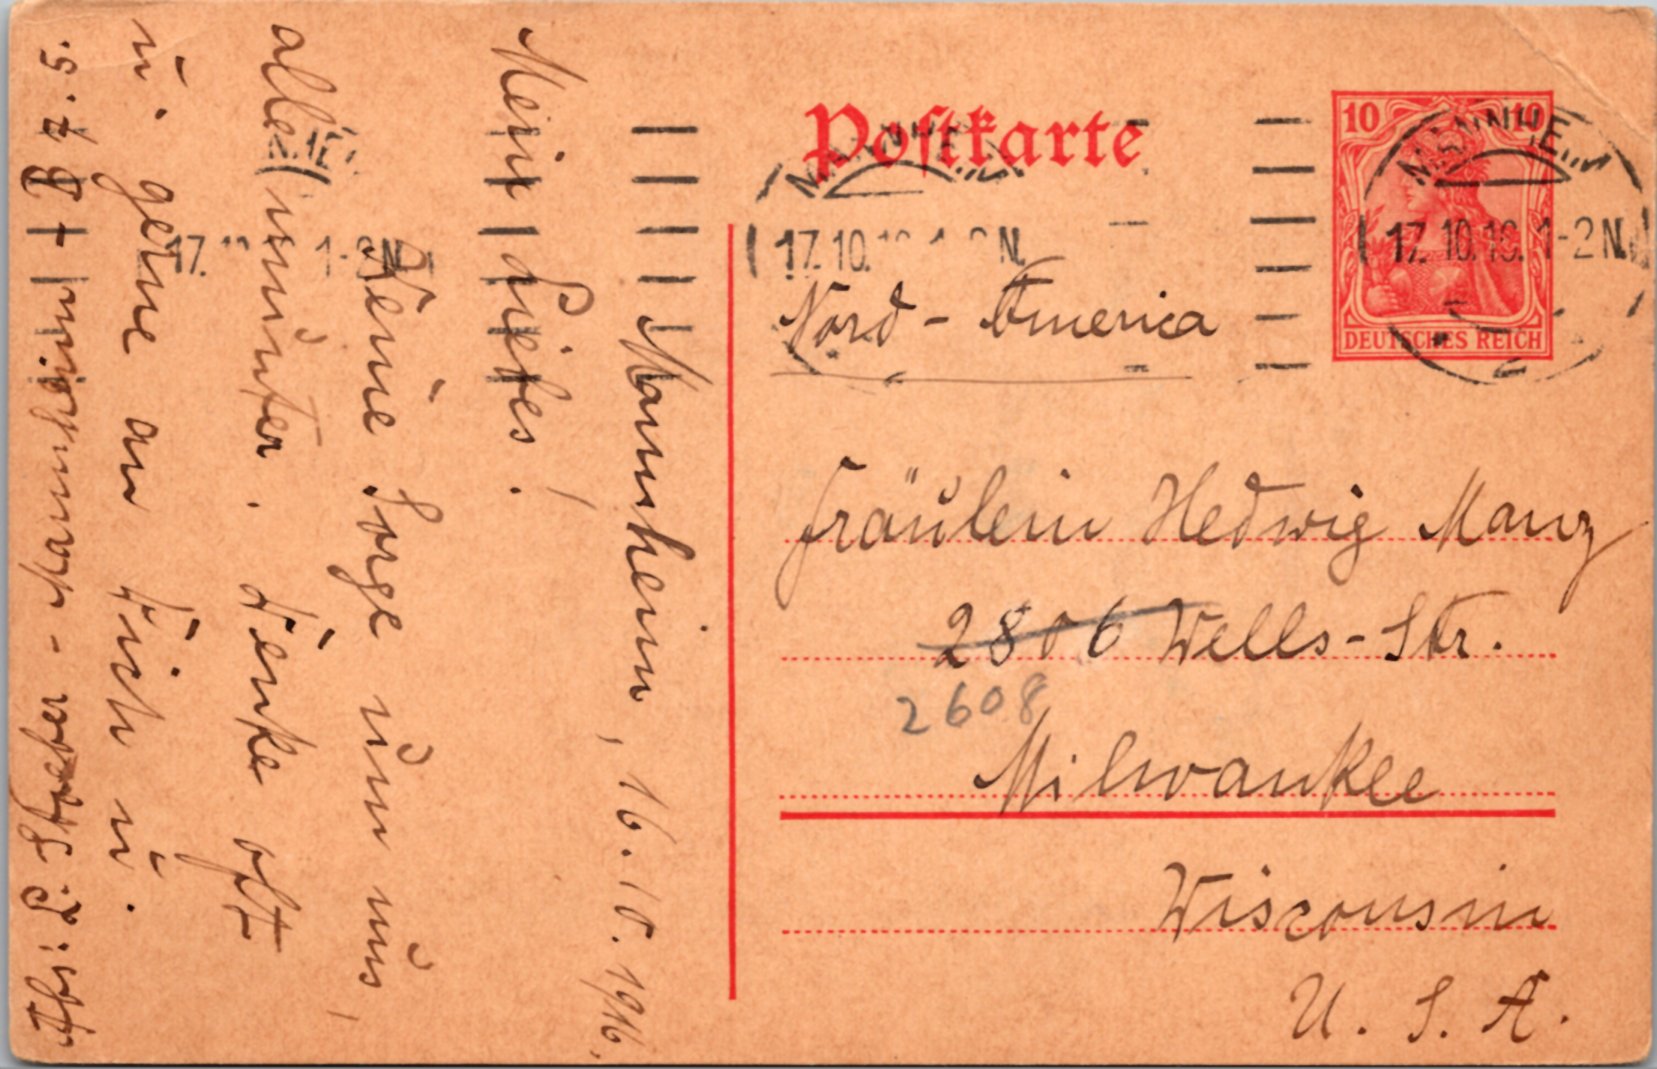 Postkarte
10 10
DEUTSCHES REICH
MANNHEIM
17.10.16. 1-2 N.
MANNHEIM
17.10. N.
17. 1-2 N
Nord - America
Fräulein Hedwig Manz
2806 Wells-Str.
2608
Milwaukee
Wisconsin
U. S. A.
Mannheim, 16.10.1916.
Mein Liebes!
Keine Sorge um uns,
alles munter. Denke oft
u. gerne an Dich u.
Abs: L. Streber - Mannheim - B 7. 5.